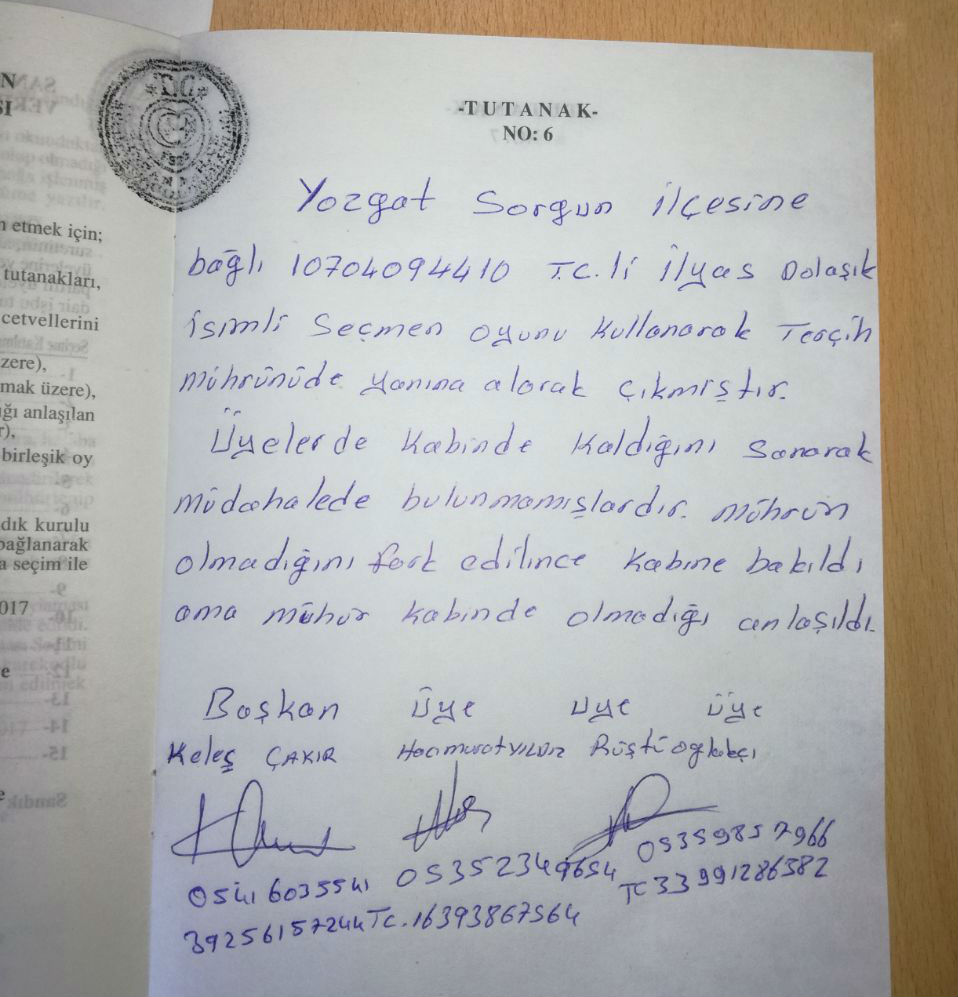 N
SI
n etmek için;
tutanakları,
cetvellerini
zere),
mak üzere),
ğı anlaşılan
r),
birleşik oy
dık kurulu
bağlanarak
a seçim ile
017
e
T.C.
-TUTANAK-
NO: 6
Yozgat Sorgun ilçesine
bağlı 10704094410 T.C.li İlyas Dolaşık
isimli Seçmen oyunu kullanarak Terçih
mührünüde yanına alarak çıkmıştır.
Üyelerde kabinde kaldığını sanarak
müdahalede bulunmamışlardır. mührün
olmadığını fark edilince kabine bakıldı
ama mühür kabinde olmadığı anlaşıldı.
Başkan Üye Uye Üye
Keleş ÇAKIR Hacımurat YILDIZ Rüştü
0541 6035541 05352349654 05359857966
39256157244 TC.16393867564 TC 33991286382